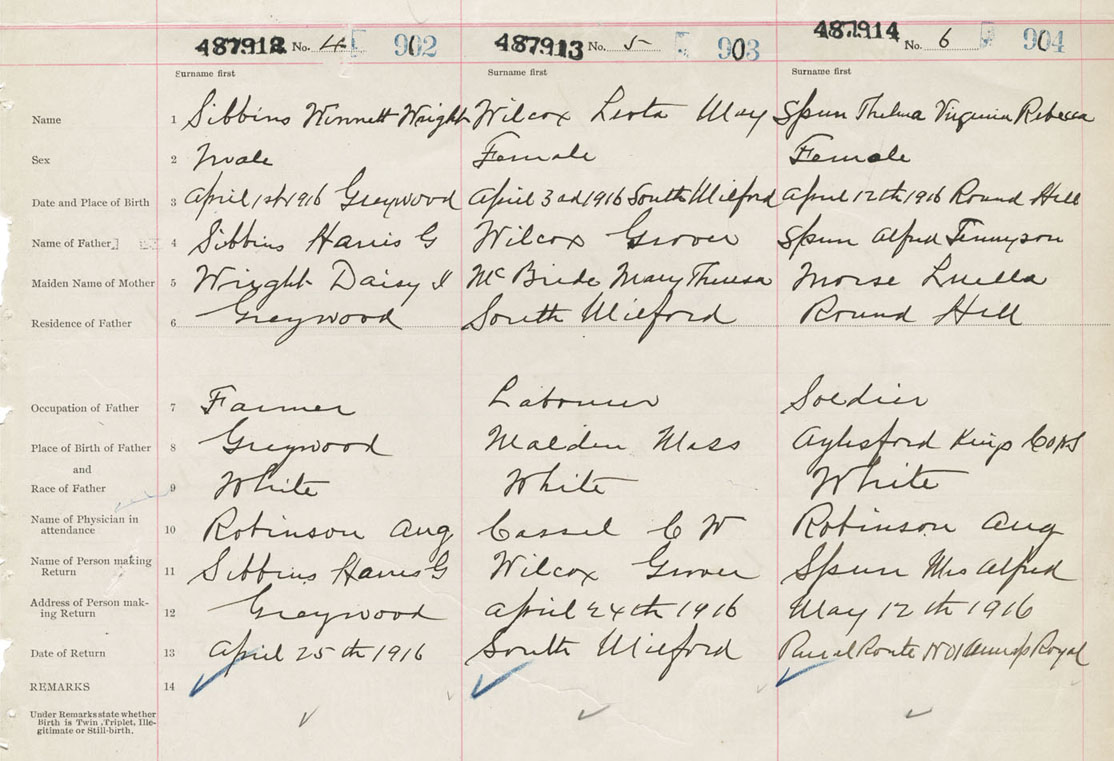 487912 No. 4 902 487913 No. 5 903 487914 No. 6 904
Surname first Surname first Surname first
Name 1 Sibbins Winnett Wright Wilcox Leota May Spurr Thelma Virginia Rebecca
Sex 2 Male Female Female
Date and Place of Birth 3 April 1st 1916 Greywood April 3rd 1916 South Milford April 12th 1916 Round Hill
Name of Father 4 Sibbins Harris G Wilcox Grover Spurr Alfred Tennyson
Maiden Name of Mother 5 Wright Daisy I McBride Mary Theresa Morse Luella
Residence of Father 6 Greywood South Milford Round Hill
Occupation of Father 7 Farmer Labourer Soldier
Place of Birth of Father 8 Greywood Malden Mass Aylesford Kings Co NS
and
Race of Father 9 White White White
Name of Physician in
attendance 10 Robinson Aug Cassel C W Robinson Aug
Name of Person making
Return 11 Sibbins Harris G Wilcox Grover Spurr Mrs Alfred
Address of Person mak-
ing Return 12 Greywood April 24th 1916 May 12th 1916
Date of Return 13 April 25th 1916 South Milford Rural Route No 1 Annap Royal
REMARKS 14
Under Remarks state whether
Birth is Twin, Triplet, Ille-
gitimate or Still-birth.